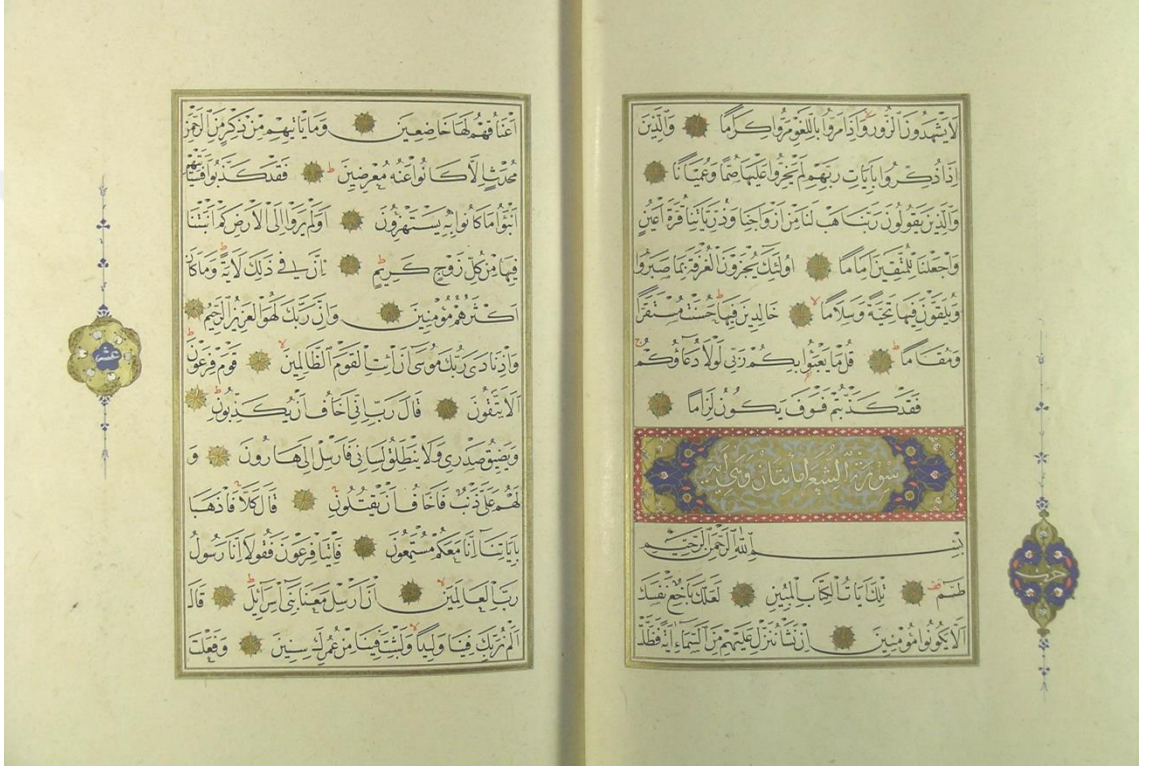 لَا يَشْهَدُونَ الزُّورَ وَإِذَا مَرُّوا بِاللَّغْوِ مَرُّوا كِرَامًا وَالَّذِينَ
إِذَا ذُكِّرُوا بِآيَاتِ رَبِّهِمْ لَمْ يَخِرُّوا عَلَيْهَا صُمًّا وَعُمْيَانًا
وَالَّذِينَ يَقُولُونَ رَبَّنَا هَبْ لَنَا مِنْ أَزْوَاجِنَا وَذُرِّيَّاتِنَا قُرَّةَ أَعْيُنٍ
وَاجْعَلْنَا لِلْمُتَّقِينَ إِمَامًا أُولَئِكَ يُجْزَوْنَ الْغُرْفَةَ بِمَا صَبَرُوا
وَيُلَقَّوْنَ فِيهَا تَحِيَّةً وَسَلَامًا خَالِدِينَ فِيهَا حَسُنَتْ مُسْتَقَرًّا
وَمُقَامًا قُلْ مَا يَعْبَؤُا بِكُمْ رَبِّي لَوْلَا دُعَاؤُكُمْ
فَقَدْ كَذَّبْتُمْ فَسَوْفَ يَكُونُ لِزَامًا
سورة الشعرا مائتان آية
بِسْمِ اللَّهِ الرَّحْمَنِ الرَّحِيمِ
طسم تِلْكَ آيَاتُ الْكِتَابِ الْمُبِينِ لَعَلَّكَ بَاخِعٌ نَفْسَكَ
أَلَّا يَكُونُوا مُؤْمِنِينَ إِنْ نَشَأْ نُنَزِّلْ عَلَيْهِمْ مِنَ السَّمَاءِ آيَةً فَظَلَّتْ
حزب
أَعْنَاقُهُمْ لَهَا خَاضِعِينَ وَمَا يَأْتِيهِمْ مِنْ ذِكْرٍ مِنَ الرَّحْمَنِ
مُحْدَثٍ إِلَّا كَانُوا عَنْهُ مُعْرِضِينَ فَقَدْ كَذَّبُوا فَسَيَأْتِيهِمْ
أَنْبَؤُا مَا كَانُوا بِهِ يَسْتَهْزِؤُنَ أَوَلَمْ يَرَوْا إِلَى الْأَرْضِ كَمْ أَنْبَتْنَا
فِيهَا مِنْ كُلِّ زَوْجٍ كَرِيمٍ إِنَّ فِي ذَلِكَ لَآيَةً وَمَا كَانَ
أَكْثَرُهُمْ مُؤْمِنِينَ وَإِنَّ رَبَّكَ لَهُوَ الْعَزِيزُ الرَّحِيمُ
وَإِذْ نَادَى رَبُّكَ مُوسَى أَنِ ائْتِ الْقَوْمَ الظَّالِمِينَ قَوْمَ فِرْعَوْنَ
أَلَا يَتَّقُونَ قَالَ رَبِّ إِنِّي أَخَافُ أَنْ يُكَذِّبُونِ
وَيَضِيقُ صَدْرِي وَلَا يَنْطَلِقُ لِسَانِي فَأَرْسِلْ إِلَى هَارُونَ وَ
لَهُمْ عَلَيَّ ذَنْبٌ فَأَخَافُ أَنْ يَقْتُلُونِ قَالَ كَلَّا فَاذْهَبَا
بِآيَاتِنَا إِنَّا مَعَكُمْ مُسْتَمِعُونَ فَأْتِيَا فِرْعَوْنَ فَقُولَا إِنَّا رَسُولُ
رَبِّ الْعَالَمِينَ أَنْ أَرْسِلْ مَعَنَا بَنِي إِسْرَائِيلَ قَالَ
أَلَمْ نُرَبِّكَ فِينَا وَلِيدًا وَلَبِثْتَ فِينَا مِنْ عُمُرِكَ سِنِينَ وَفَعَلْتَ
عشر